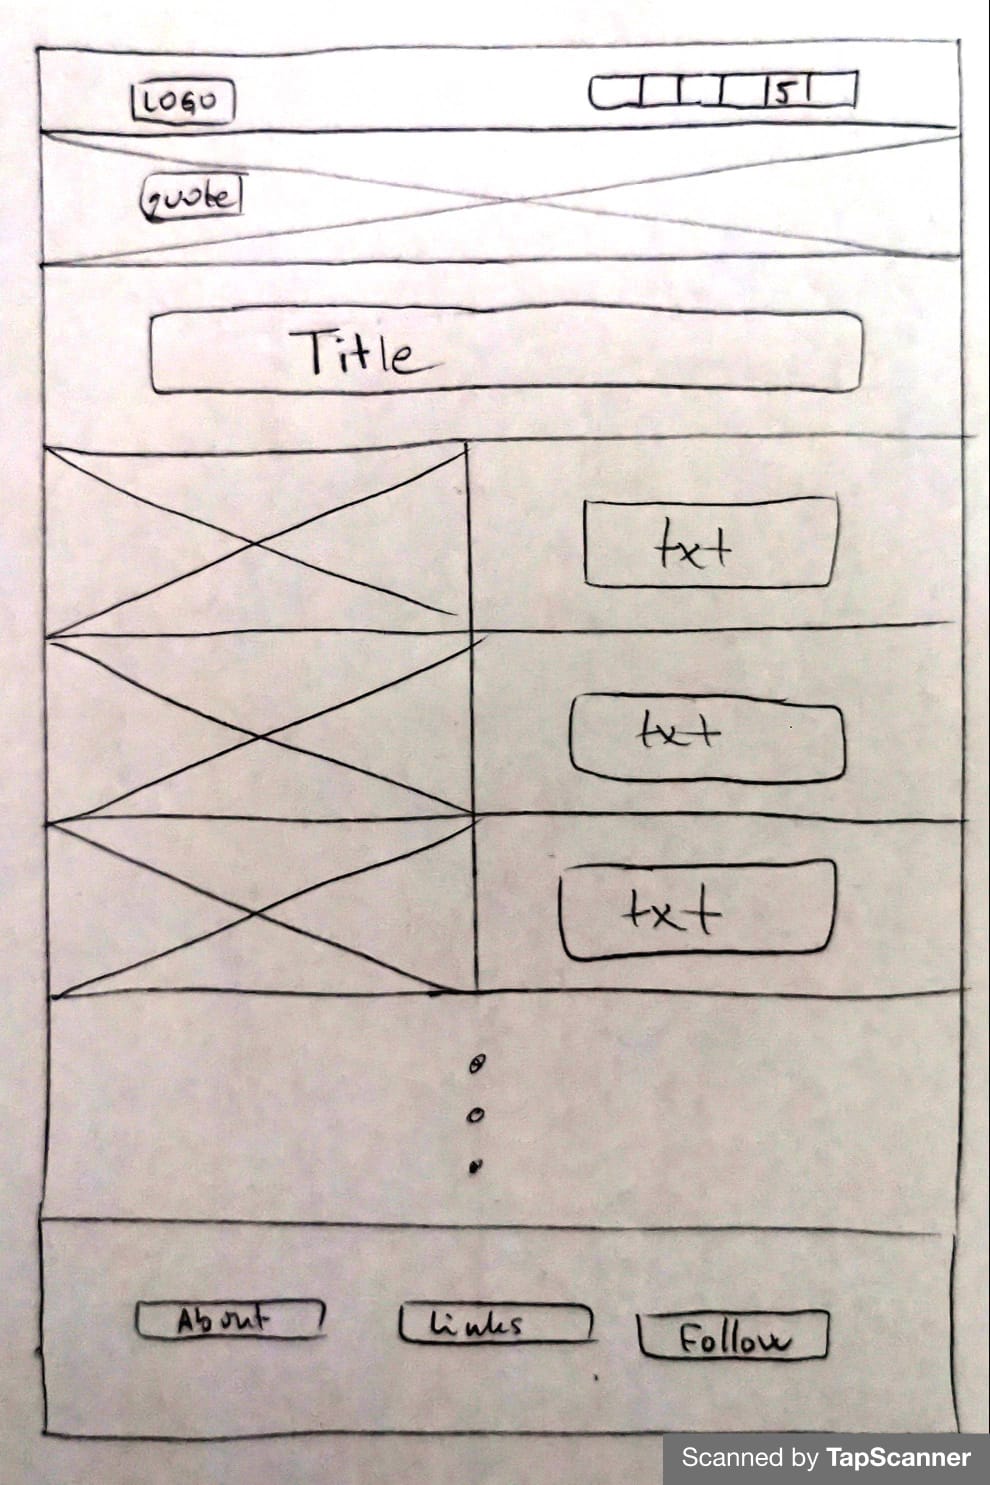 LOGO
5
quote
Title
txt
txt
txt
About
Links
Follow
Scanned by TapScanner